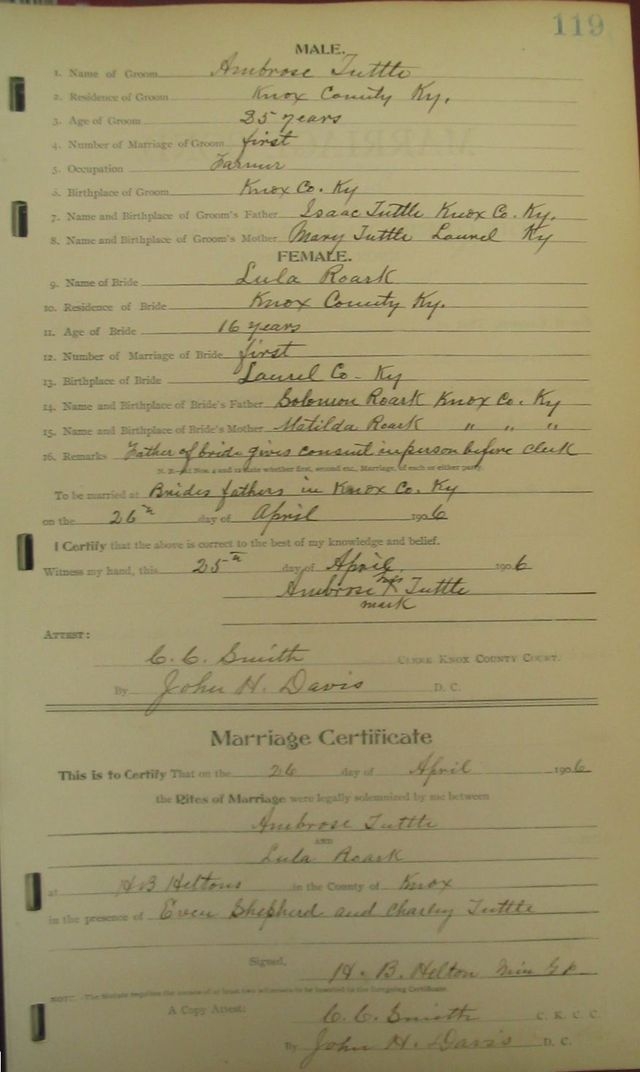 119
MALE.
1. Name of Groom Ambrose Tuttle
2. Residence of Groom Knox County Ky.
3. Age of Groom 25 years
4. Number of Marriage of Groom first
5. Occupation Farmer
6. Birthplace of Groom Knox Co. Ky
7. Name and Birthplace of Groom's Father Isaac Tuttle Knox Co. Ky.
8. Name and Birthplace of Groom's Mother Mary Tuttle Laurel Ky
FEMALE.
9. Name of Bride Lula Roark
10. Residence of Bride Knox County Ky.
11. Age of Bride 16 years
12. Number of Marriage of Bride first
13. Birthplace of Bride Laurel Co - Ky
14. Name and Birthplace of Bride's Father Solomon Roark Knox Co. Ky
15. Name and Birthplace of Bride's Mother Matilda Roark " " "
16. Remarks Father of bride gives consent in person before clerk
N. B.—At Nos. 4 and 12 state whether first, second etc., Marriage, of each or either party.
To be married at Brides fathers in Knox Co. Ky
on the 26th day of April 1906
I Certify that the above is correct to the best of my knowledge and belief.
Witness my hand, this 25th day of April 1906
Ambrose his X Tuttle
mark
ATTEST:
C. C. Smith CLERK KNOX COUNTY COURT.
By John H. Davis D. C.
Marriage Certificate
This is to Certify That on the 26 day of April 1906
the Rites of Marriage were legally solemnized by me between
Ambrose Tuttle
AND
Lula Roark
at H B Heltons in the County of Knox
in the presence of Even Shepherd and Charley Tuttle
Signed, H. B. Helton Min
NOTE. The Statute requires the names of at least two witnesses to be inserted in the foregoing Certificate.
A Copy Attest: C. C. Smith C. K. C. C.
By John H. Davis D. C.